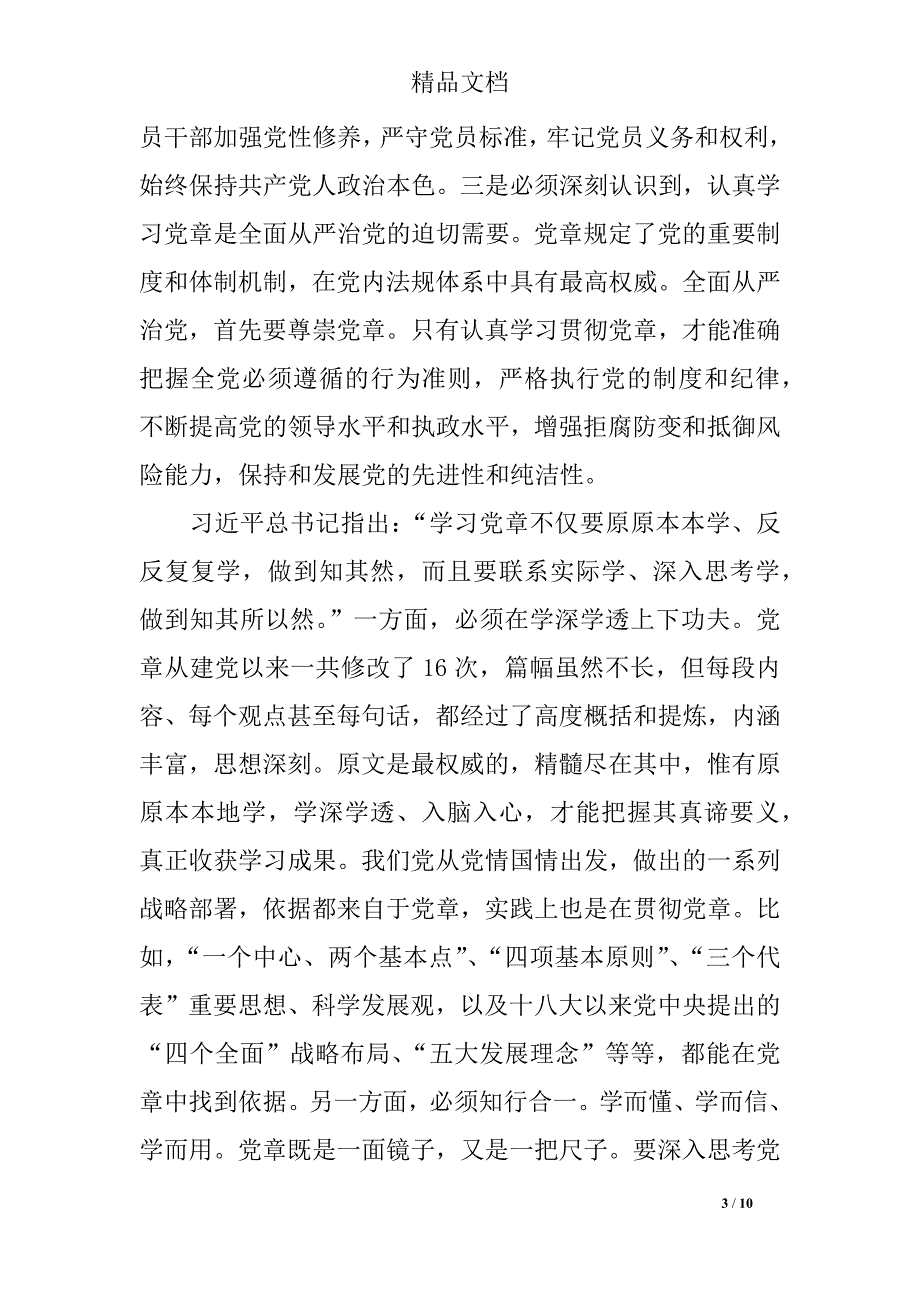 精品文档
员干部加强党性修养，严守党员标准，牢记党员义务和权利，
始终保持共产党人政治本色。三是必须深刻认识到，认真学
习党章是全面从严治党的迫切需要。党章规定了党的重要制
度和体制机制，在党内法规体系中具有最高权威。全面从严
治党，首先要尊崇党章。只有认真学习贯彻党章，才能准确
把握全党必须遵循的行为准则，严格执行党的制度和纪律，
不断提高党的领导水平和执政水平，增强拒腐防变和抵御风
险能力，保持和发展党的先进性和纯洁性。
习近平总书记指出：“学习党章不仅要原原本本学、反
反复复学，做到知其然，而且要联系实际学、深入思考学，
做到知其所以然。”一方面，必须在学深学透上下功夫。党
章从建党以来一共修改了 16 次，篇幅虽然不长，但每段内
容、每个观点甚至每句话，都经过了高度概括和提炼，内涵
丰富，思想深刻。原文是最权威的，精髓尽在其中，惟有原
原本本地学，学深学透、入脑入心，才能把握其真谛要义，
真正收获学习成果。我们党从党情国情出发，做出的一系列
战略部署，依据都来自于党章，实践上也是在贯彻党章。比
如，“一个中心、两个基本点”、“四项基本原则”、“三个代
表”重要思想、科学发展观，以及十八大以来党中央提出的
“四个全面”战略布局、“五大发展理念”等等，都能在党
章中找到依据。另一方面，必须知行合一。学而懂、学而信、
学而用。党章既是一面镜子，又是一把尺子。要深入思考党
3 / 10